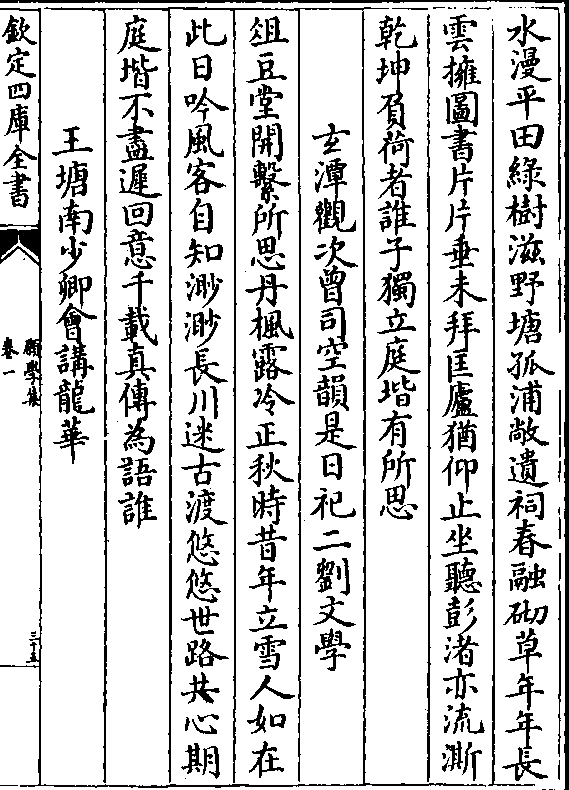 水漫平田綠樹滋野塘孤浦敞遺祠春融砌草年年長
雲擁圖書片片垂未拜匡廬猶仰止坐聽彭渚亦流澌
乾坤負荷者誰子獨立庭堦有所思
玄潭觀次曾司空韻是日祀二劉文學
俎豆堂開繫所思丹楓露冷正秋時昔年立雪人如在
此日吟風客自知渺渺長川迷古渡悠悠世路共心期
庭堦不盡遲回意千載真傳為語誰
王塘南少卿會講龍華
欽定四庫全書
願學集
卷一
三十五